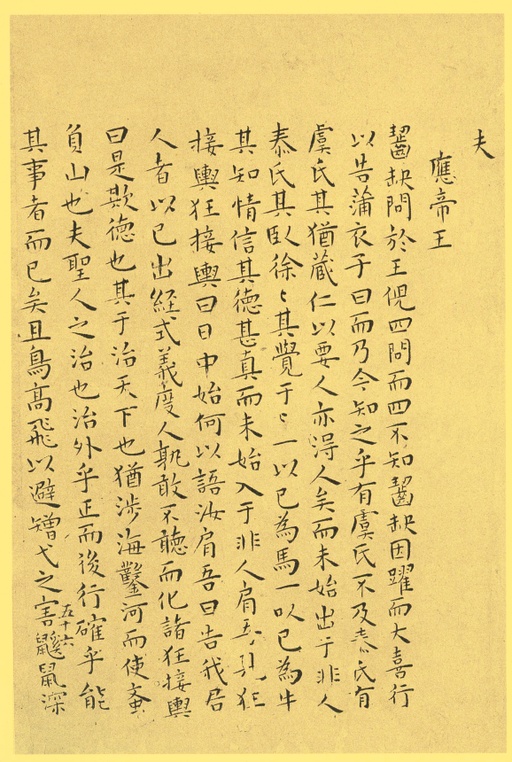 夫
應帝王
齧缺問於王倪四問而四不知齧缺因躍而大喜行
以告蒲衣子曰而乃今知之乎有虞氏不及泰氏有
虞氏其猶蔵仁以要人亦得人矣而未始出于非人
泰氏其臥徐〻其覺于〻一以己為馬一以己為牛
其知情信其徳甚真而未始入于非人肩吾見狂
接輿狂接輿曰日中始何以語汝肩吾曰告我君
人者以己出経式義度人孰敢不聴而化諸狂接輿
曰是欺徳也其于治天下也猶涉海鑿河而使蚉
負山也夫聖人之治也治外乎正而後行確乎能
五十六
其事者而已矣且鳥高飛以避矰弋之害鼷鼠深